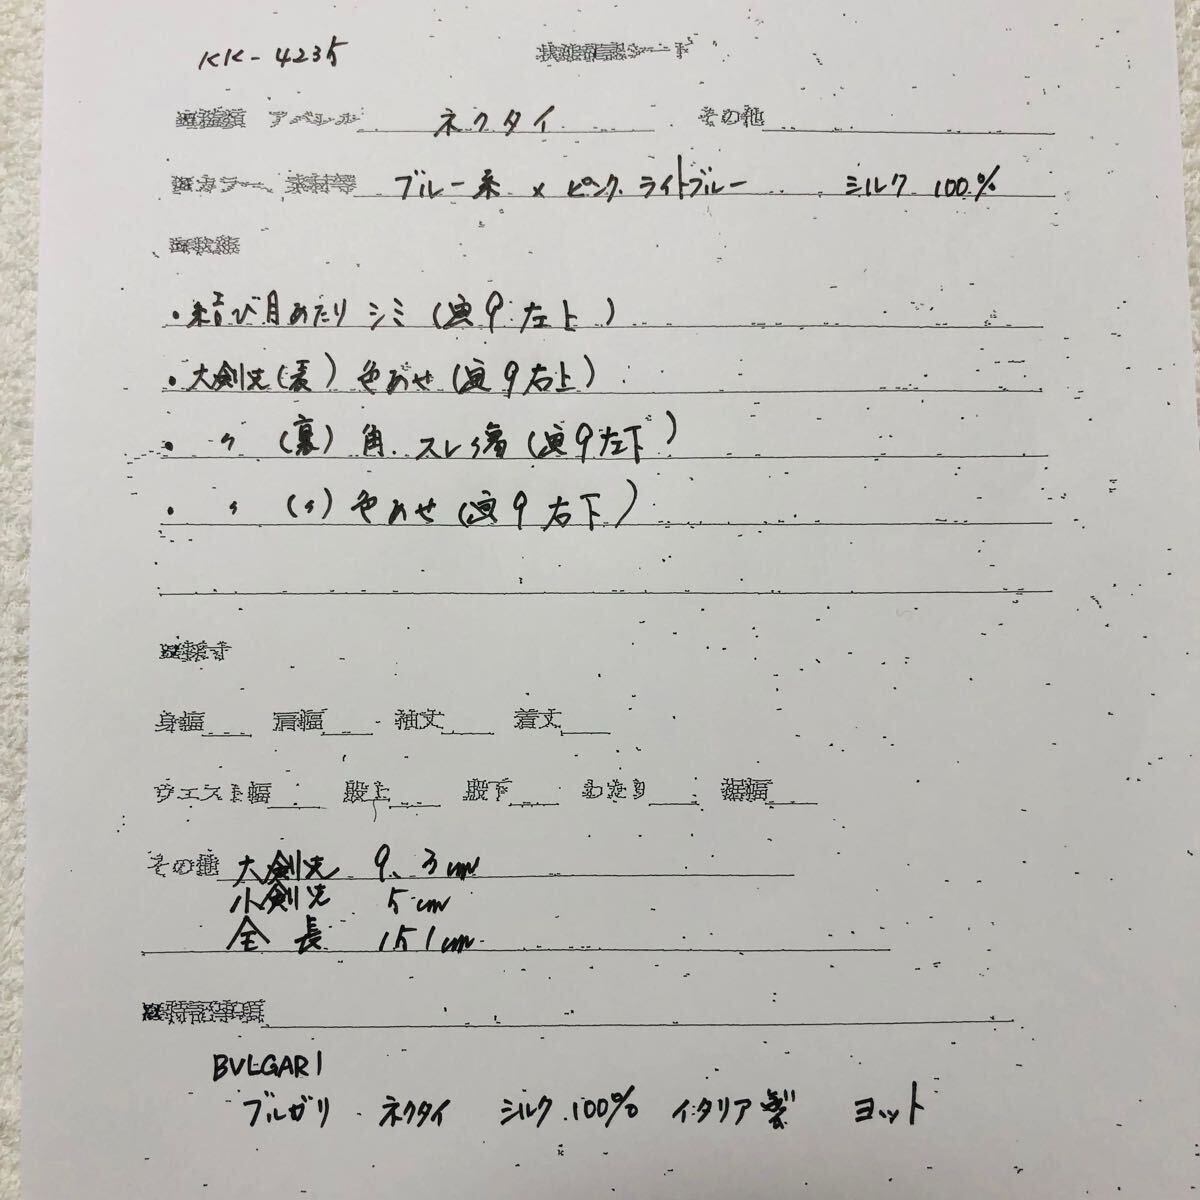 KK-4235 状態確認シート
種類 アパレル ネクタイ その他
カラー、素材等 ブルー系 × ピンク、ライトブルー シルク 100%
状態
・結び目あたり シミ (画9左上)
・大剣先(表) 色あせ (画9右上)
・〃 (裏) 角、スレ傷 (画9左下)
・〃 (〃) 色あせ (画9右下)
採寸
身幅 肩幅 袖丈 着丈
ウエスト幅 股上 股下 わたり 裾幅
その他 大剣先 9.3cm
小剣先 5cm
全長 151cm
特記事項
BVLGARI
ブルガリ ネクタイ シルク100% イタリア製 ヨット